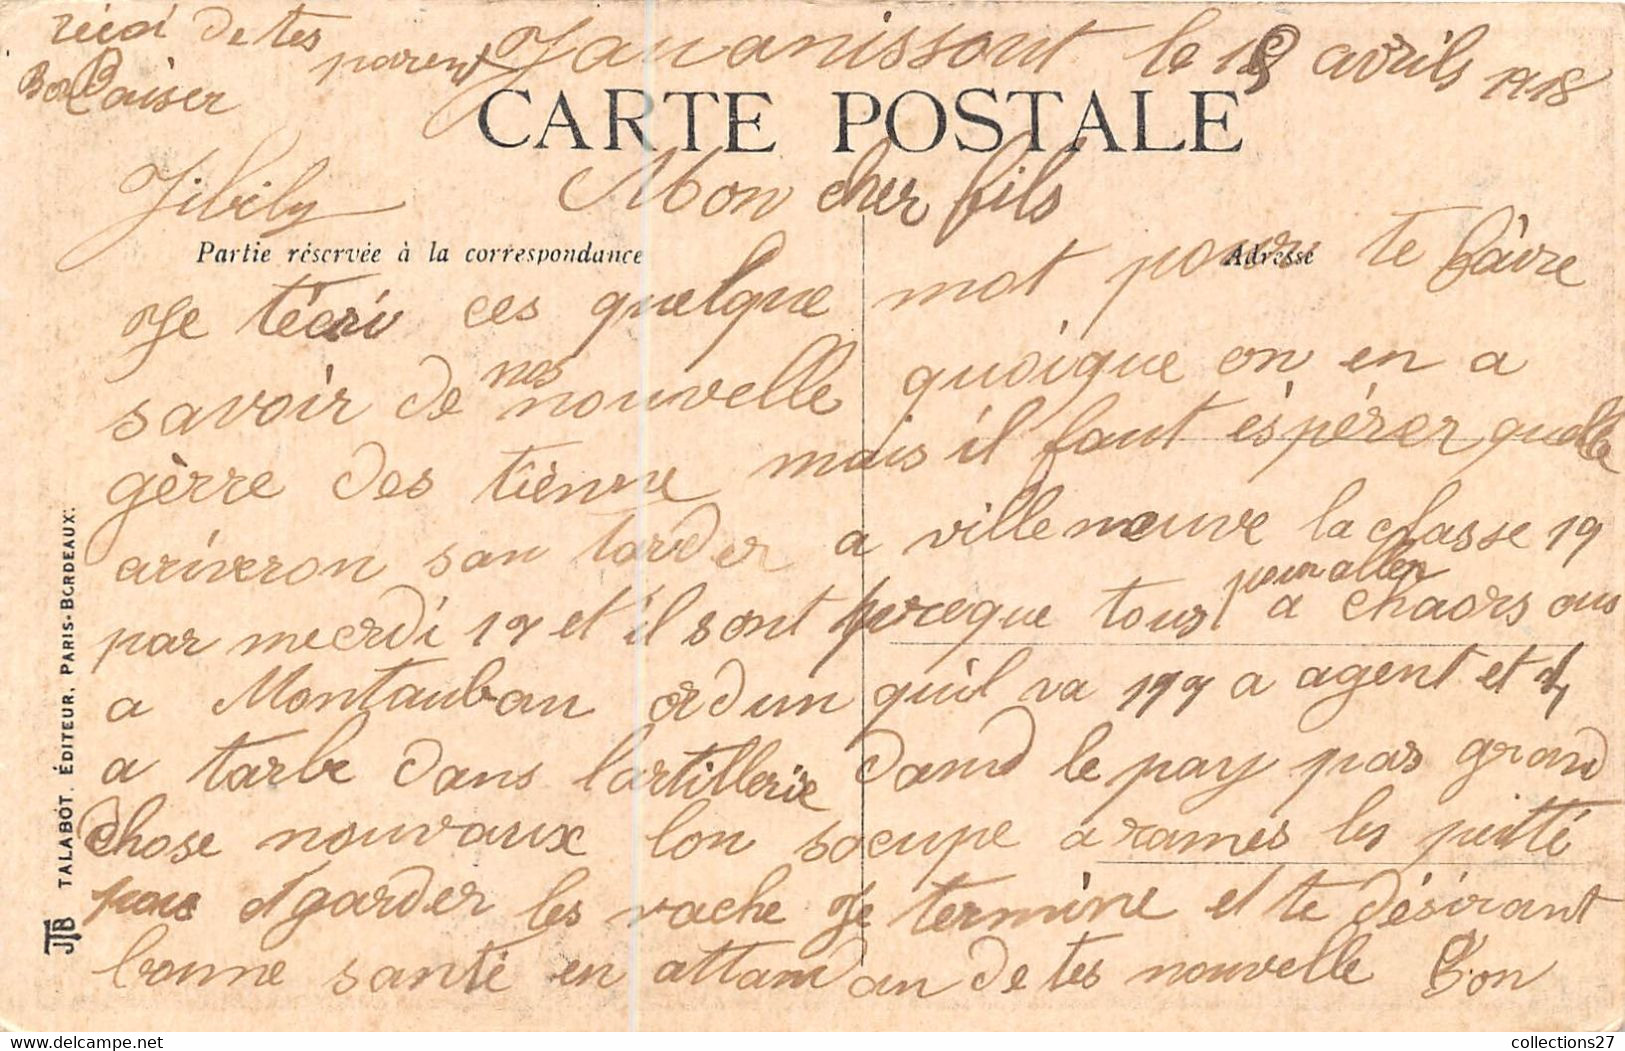 réçoi de tes parent
Bon Baiser
Jauanissont le 18 avrils 1918
CARTE POSTALE
Jibily
Mon cher fils
Partie réservée à la correspondance
Adresse
Je técri ces quelque mot pour te fàire
savoir de nos nouvelle quoique on en a
gèrre des tiènne mais il faut éspérer quelle
ariveron san tarder a villeneuve la classe 19
par mecrdi 17 et il sont presque tous pour aller a chaors ous
a Montauban un quil va a agent et
a tarbe dans lartillerie dand le pay pas grand
chose nouvaux lon socupe a rames les petité
pour garder les vache Je termine et te désirant
bonne santé en attamdan de tes nouvelle Bon
TALABOT. ÉDITEUR, PARIS-BORDEAUX.
JTB
collections27